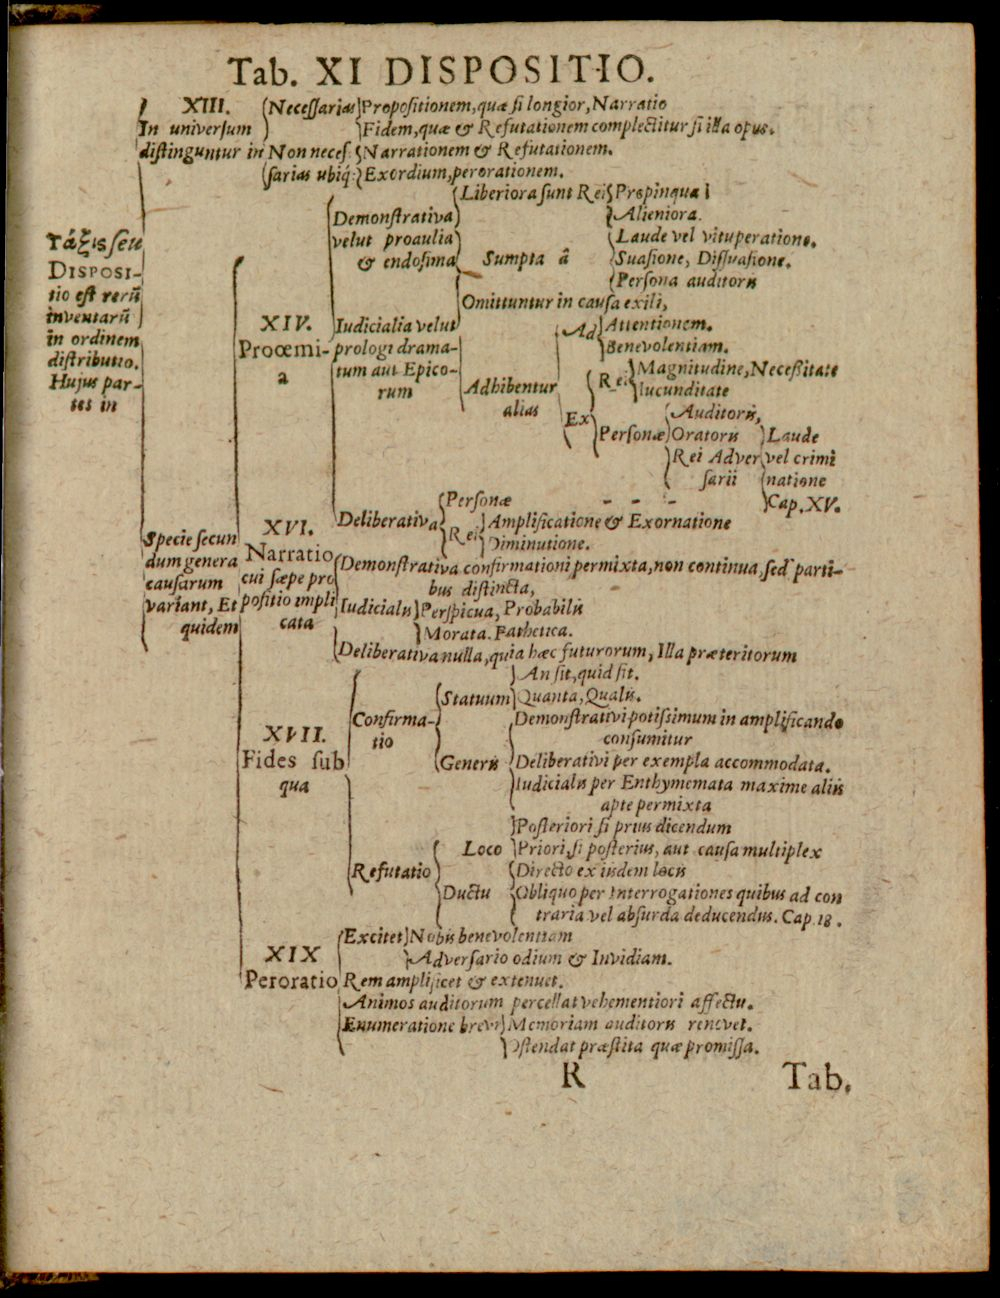 Tab. XI DISPOSITIO.
XIII. Neceſſarias Propoſitionem, quæ ſi longior, Narratio
In univerſum Fidem, quæ & Refutationem complectitur ſi illa opus.
diſtinguntur in Non neceſ- Narrationem & Refutationem.
ſarias ubiq́; Exordium, perorationem.
Liberiora ſunt Rei Propinqua
Demonſtrativa Alieniora.
velut proaulia Laude vel vituperatione.
& endoſima Sumpta â Suaſione, Diſſuaſione.
Perſona auditoris
Omittuntur in cauſa exili,
Τάξις ſeu
DISPOSI-
tio eſt rerũ
inventarũ
in ordinem
diſtributio.
Hujus par-
tes in
XIV. Iudicialia velut Ad Attentionem.
Proœmi- prologi drama- Benevolentiam.
a tum aut Epico- Rei Magnitudine, Neceßitate
rum Adhibentur Iucunditate
alias Ex Auditoris,
Perſonæ Oratoris Laude
Rei Adver vel crimi
ſarii natione
Cap. XV.
Perſonæ - - -
Deliberativa Rei Amplificatione & Exornatione
Diminutione.
Specie ſecun
dum genera
cauſarum
variant, Et
quidem
XVI.
Narratio Demonſtrativa confirmationi permixta, non continua, ſed parti-
cui ſæpe pro bus diſtincta,
poſitio impli Iudicialis Perſpicua, Probabilis
cata Morata. Pathetica.
Deliberativa nulla, quia hæc futurorum, Illa præteritorum
An ſit, quid ſit.
Statuum Quanta, Qualis.
Confirma- Demonſtrativi potiſsimum in amplificando
tio conſumitur
XVII. Generis Deliberativi per exempla accommodata.
Fides ſub Iudicialis per Enthymemata maxime aliis
qua apte permixta
Poſteriori ſi prius dicendum
Loco Priori, ſi poſterius, aut cauſa multiplex
Refutatio Directo ex iisdem locis
Ductu Obliquo per Interrogationes quibus ad con
traria vel abſurda deducendus. Cap. 18.
Excitet Nobis benevolentiam
XIX Adverſario odium & Invidiam.
Peroratio Rem amplificet & extenuet.
Animos auditorum percellat vehementiori affectu.
Enumeratione brevi Memoriam auditoris renovet.
Oſtendat præſtita quæ promiſſa.
R Tab.